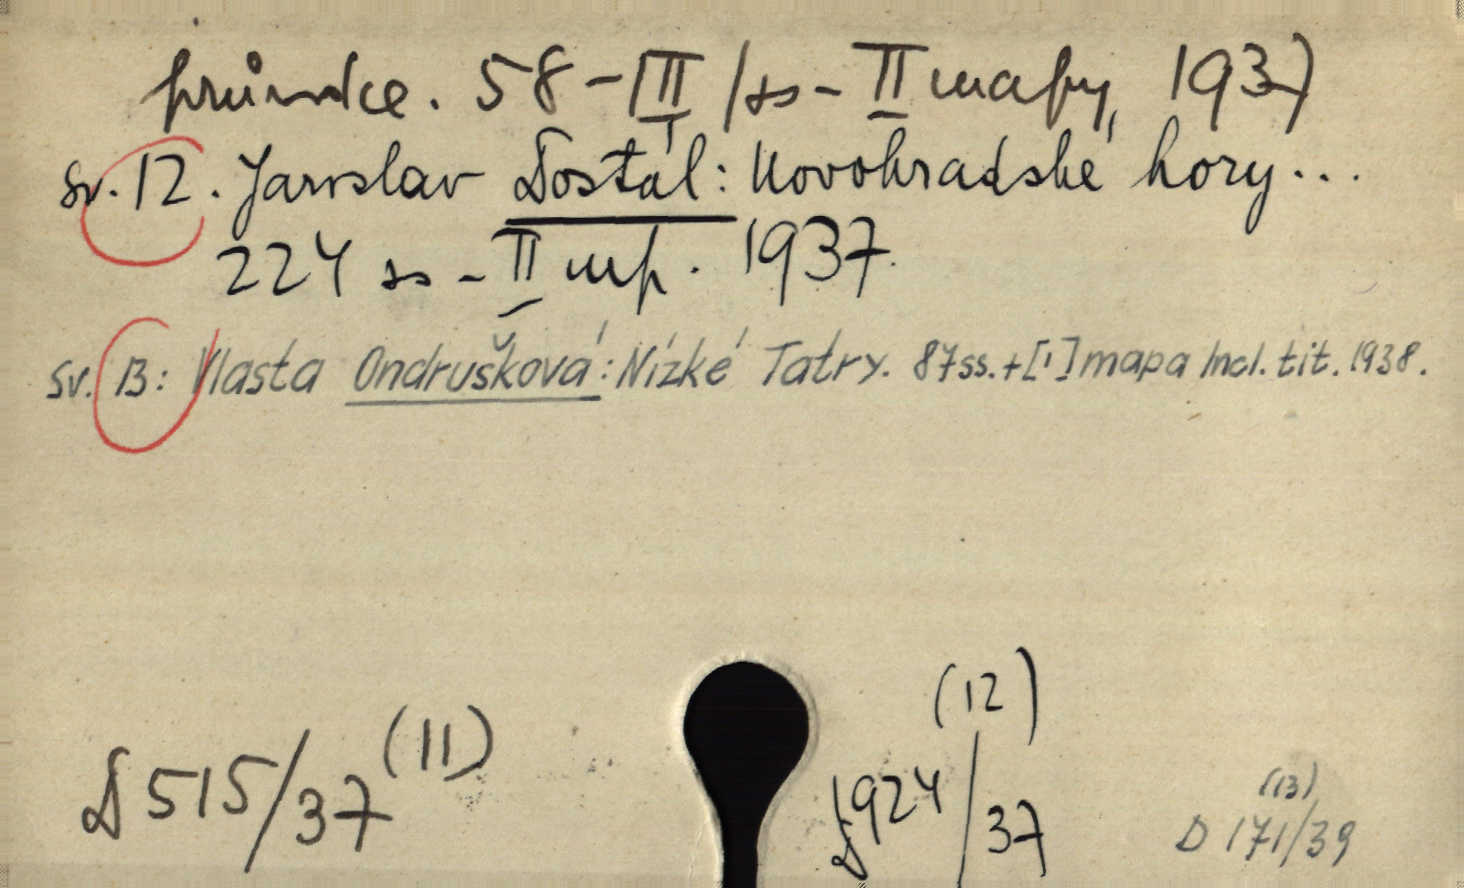 průvodce. 58 - III / ss - II mapy, 1937
sv. 12. Jaroslav Dostál: Novohradské hory...
224 ss - II mp. 1937.
sv. 13: Vlasta Ondrušková: Nízké Tatry. 87ss.+[1] mapa Incl. tit. 1938.
(12)
D 515/37 (11)
D 924/37
(13)
D 171/39